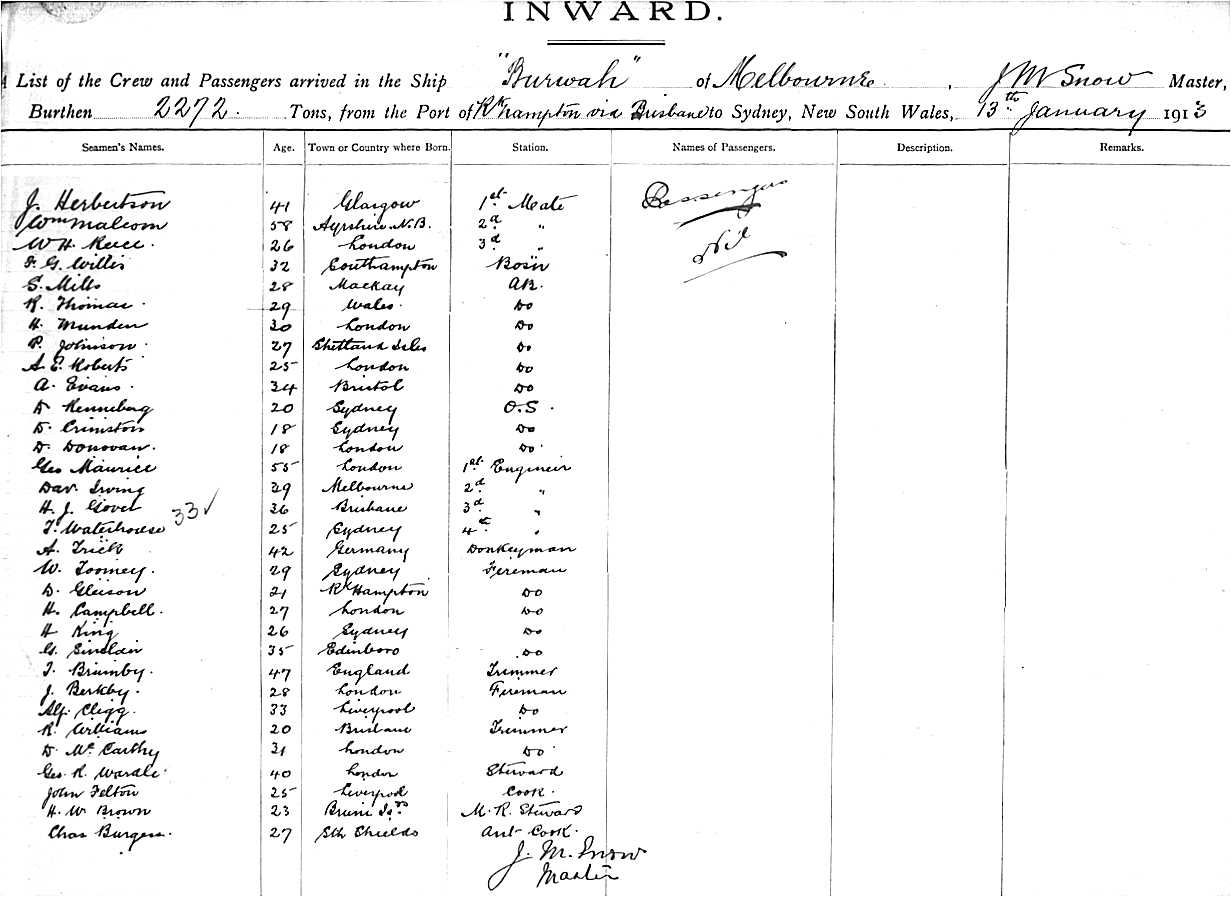 INWARD.
A List of the Crew and Passengers arrived in the Ship "Burwah" of Melbourne, J M Snow Master,
Burthen 2272. Tons, from the Port of Rk hampton via Brisbane to Sydney, New South Wales, 13th January 1913
Seamen's Names. Age. Town or Country where Born. Station. Names of Passengers. Description. Remarks.
J. Herbertson 41 Glasgow 1st Mate Passengers
Wm Malcom 58 Ayrshire N.B. 2d "
W H. Reece. 26 London 3d " Nil
F. G. Willis 32 Southampton Bosn
S. Mills 28 Mackay AB.
R. Thomas. 29 Wales. Do
H. Munden 30 London Do
P. Johnson. 27 Shetland Isles Do
A. E. Roberts 25 London Do
A. Evans. 34 Bristol Do
D Henneberg 20 Sydney O.S.
D. Crimston 18 Sydney Do
D. Donovan. 18 London Do
Geo Maurice 55 London 1st Engineir
Dav. Irving 39 Melbourne 2d "
H. J. Glover 36 Brisbane 3d "
33 ✓
T. Waterhouse 25 Sydney 4th "
A. Trick 42 Germany Donkeyman
W. Toomey. 29 Sydney Fireman
D. Gleison 21 Rk Hampton Do
H. Campbell. 27 London Do
H King 26 Sydney Do
G. Sinclair 35 Edinboro Do
T. Brumby. 47 England Trimmer
J. Berkby. 28 London Fireman
Alf. Clegg. 33 Liverpool Do
R. Williams 20 Brisbane Trimmer
D. Mc Carthy 31 London Do
Geo. R. Wardle. 40 London Steward
John Felton 25 Liverpool Cook.
H. W Brown 23 Bruni Is. M. R. Steward
Chas Burgess. 27 Sth Shields Ast Cook.
J. M. Snow
Master